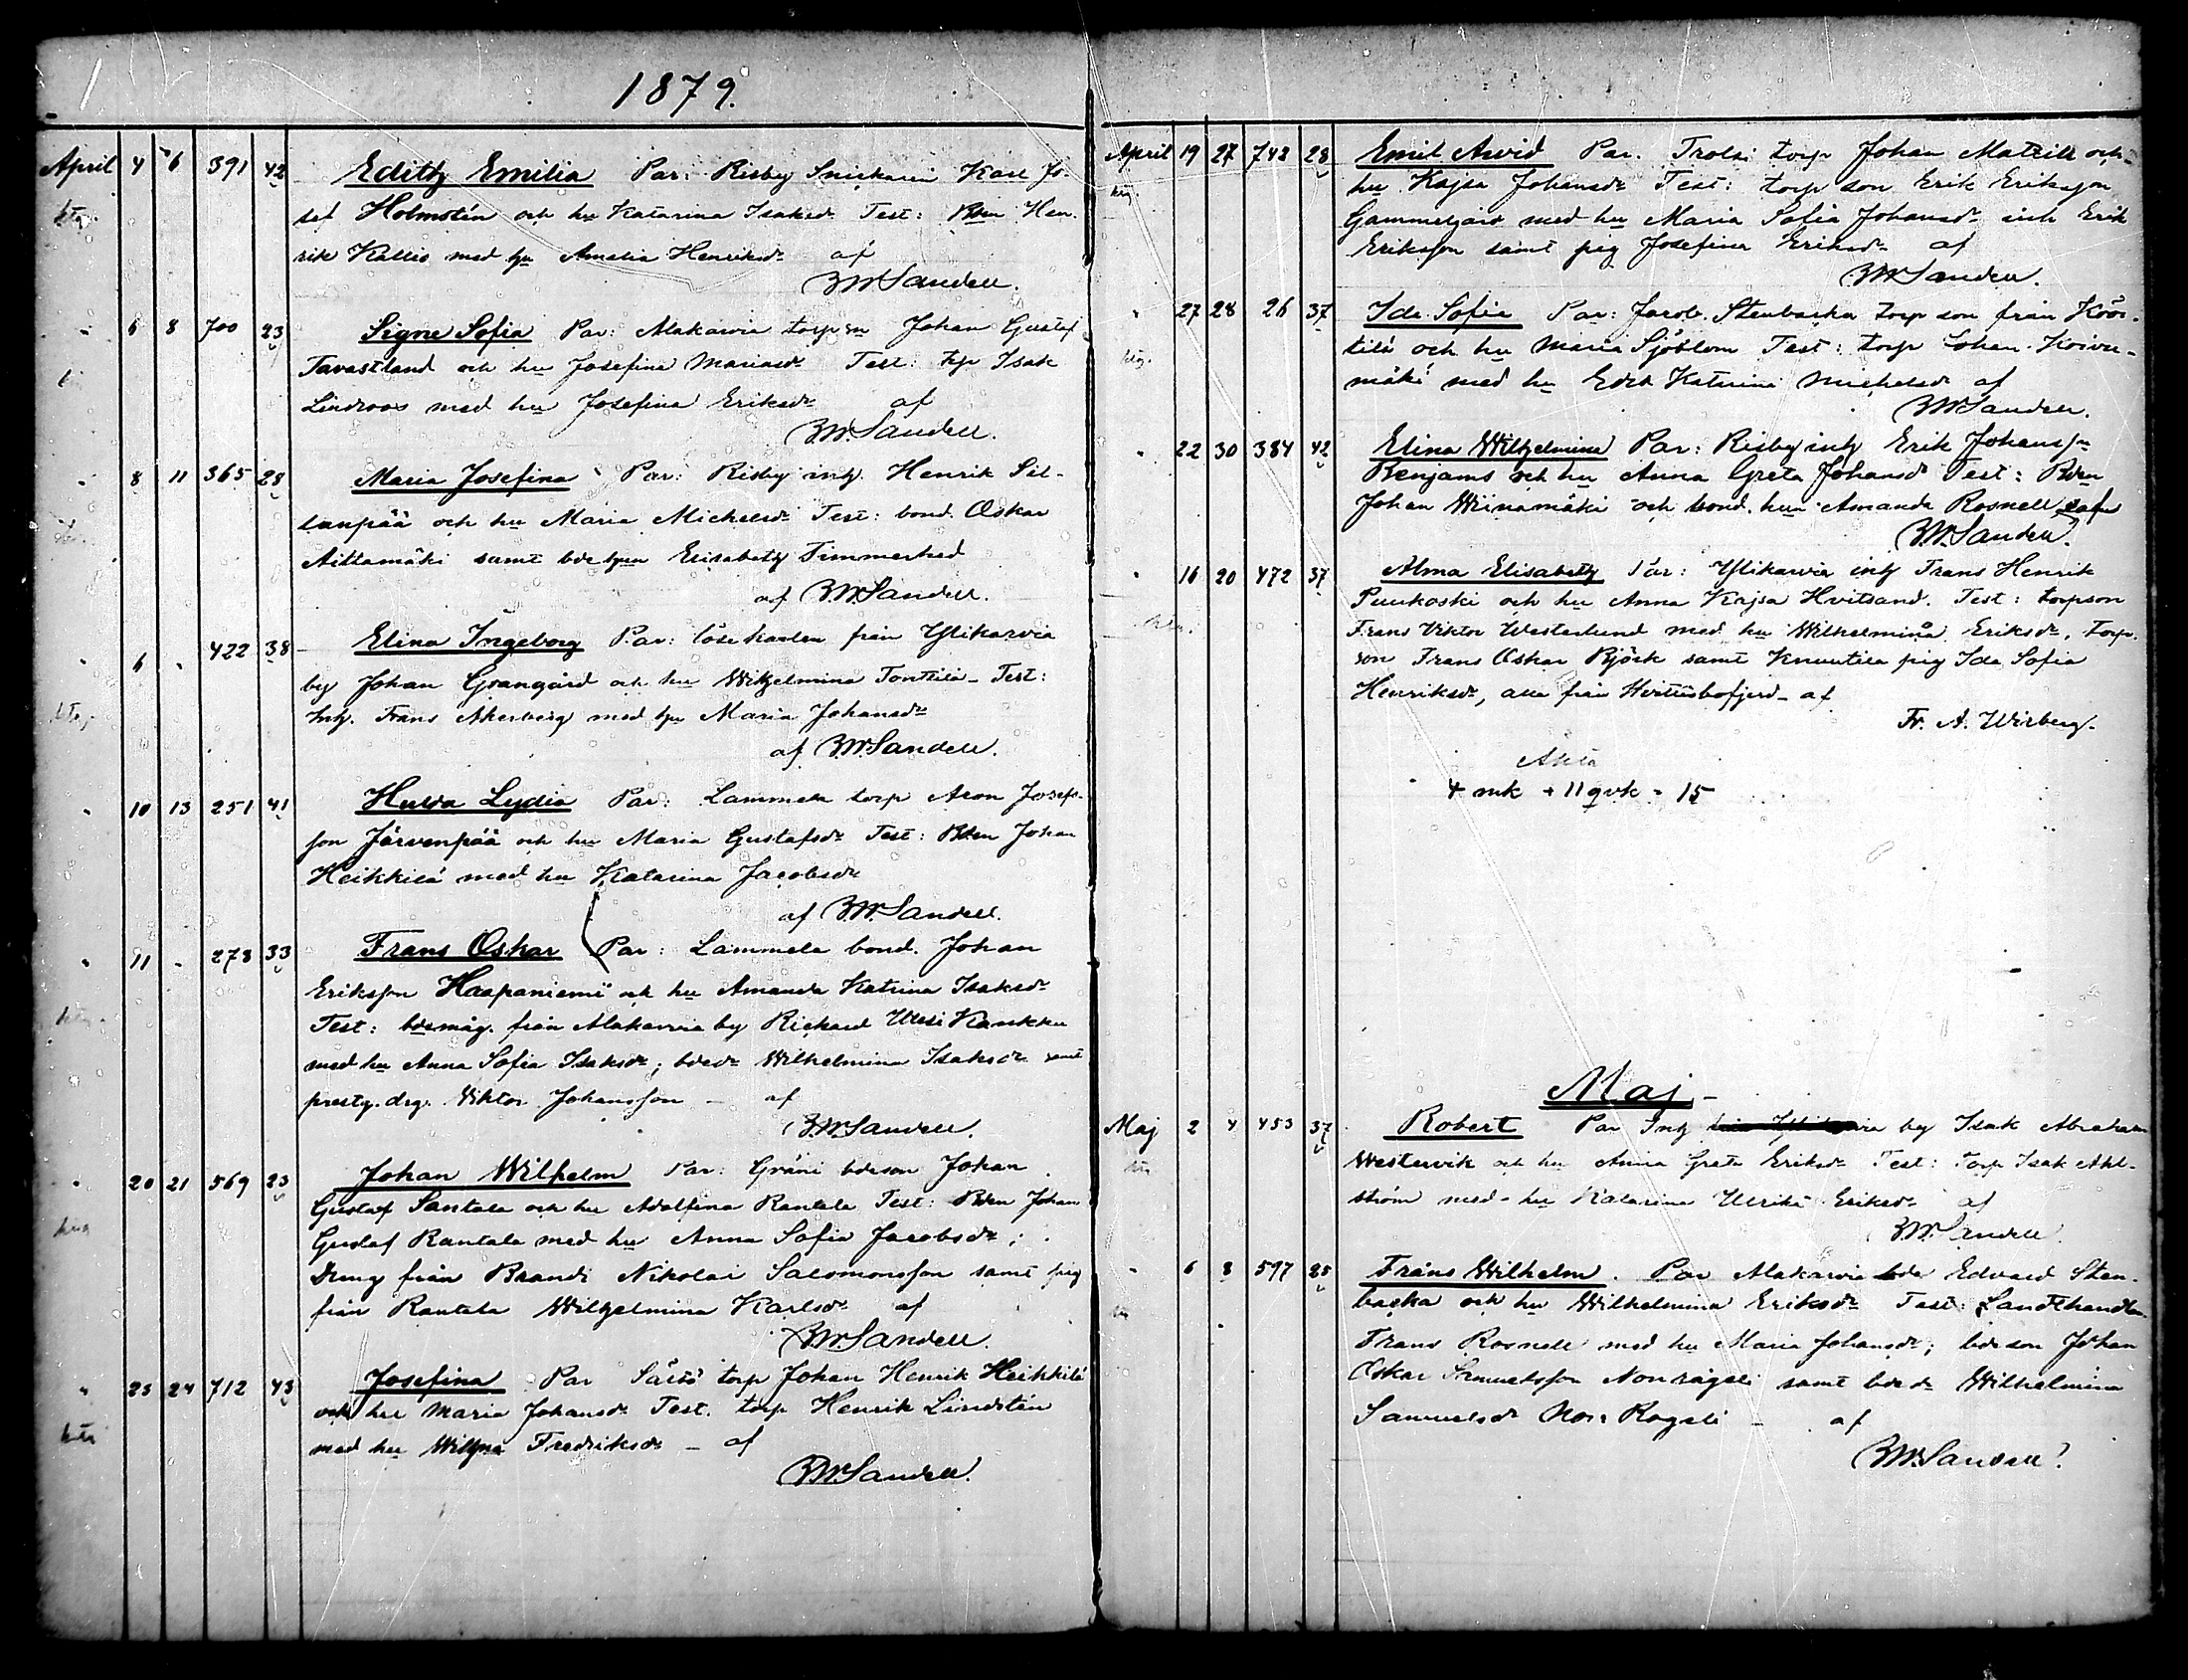 1879.
April 4 6 391 42 Edith Emilia Par: Risby Snickaren Karl Jo-
sef Holmstén och hu Katarina Isaksdr Test: Bden Hen-
rik Kallio med hu Amalia Henriksdr af
Sandell.
" 6 8 700 23 Signe Sofia Par: Alakarvia torp son Johan Gustaf
Tavastland och hu Josefina Mariasdr Test: torp Isak
Lindroos med hu Josefina Eriksdr af
Sandell.
" 8 11 365 28 Maria Josefina Par: Risby inh. Henrik Sil-
lanpää och hu Maria Michelsdr Test: bond. Oskar
Aittamäki samt bdehun Elisabeth Timmerhed
af Sandell.
" 6 " 422 38 Elina Ingeborg Par: löskarlen från Yllikarvia
by Johan Grangård och hu Wilhelmina Tonttila - Test:
Inh. Frans Akerberg med hu Maria Johansdr
af Sandell.
" 10 13 251 41 Hulda Lydia Par: Lammela torp Aron Josefs-
son Järvenpää och hu Maria Gustafsdr Test: Bden Johan
Heikkilä med hu Katarina Jacobsdr
af Sandell.
" 11 " 278 33 Frans Oskar Par: Lammela bond. Johan
Eriksson Haapaniemi och hu Amanda Katrina Isaksdr
Test: bdemåg. från Alakarvia by Rickard Uusi Kankku
med hu Anna Sofia Isaksdr; bdedr Wilhelmina Isaksdr samt
prestg. drg. Viktor Johansson - af
Sandell.
" 20 21 569 23 Johan Wilhelm Par: Gräni bdeson Johan
Gustaf Santala och hu Adolfina Rantala Test: Bden Johan
Gustaf Rantala med hu Anna Sofia Jacobsdr;
Dreng från Brandi Nikolai Salomonsson samt pig
från Rantala Wilhelmina Karlsdr af
Sandell.
" 23 24 712 43 Josefina Par Särö torp Johan Henrik Heikkilä
och hu Maria Johansdr Test. torp Henrik Lindstén
med hu Wilhna Fredriksdr - af
Sandell.
April 19 27 748 28 Emil Arvid Par. Trolsi torp Johan Matell och
hu Kajsa Johansdr Test: torp son Erik Eriksson
Gammelgård med hu Maria Sofia Johansdr inh Erik
Eriksson samt pig Josefina Eriksdr af
Sandell.
" 27 28 26 37 Ida Sofia Par: Jacob Stenbacka torp son från Köör-
tilä och hu Maria Sjöblom Test: torp Johan Koivu-
mäki med hu Edla Katarina Michelsdr af
Sandell.
" 22 30 384 42 Elina Wilhelmina Par: Risby inh Erik Johansson
Benjams och hu Anna Greta Johansdr Test: Bden
Johan Wiinamäki och bond. hun Amanda Rosnell af
Sandell.
" 16 20 472 37 Alma Elisabeth Par: Yllikarvia inh Frans Henrik
Puukoski och hu Anna Kajsa Hvitsand. Test: torpson
Frans Viktor Westerlund med hu Wilhelmina Eriksdr, torp.
son Frans Oskar Björk samt Knuutila pig Ida Sofia
Henriksdr, alla från Hvittisbofjerd - af
Fr. A. Wirberg.
4 mk + 11 qvk = 15
Maj
Maj 2 4 453 37 Robert Par Inh by Isak Abraham
Westervik och hu Anna Greta Eriksdr Test: torp Isak Ahl-
ström med hu Katarina Ulrika Eriksdr af
Sandell.
" 6 8 597 25 Frans Wilhelm. Par Alakarvia bde Edvard Sten-
backa och hu Wilhelmina Eriksdr Test: Landthandla
Frans Rosnell med hu Maria Johansdr; bdeson Johan
Oskar Samuelsson Norrågeli samt bdedr Wilhelmina
Samuelsdr Norr Rågeli - af
Sandell.